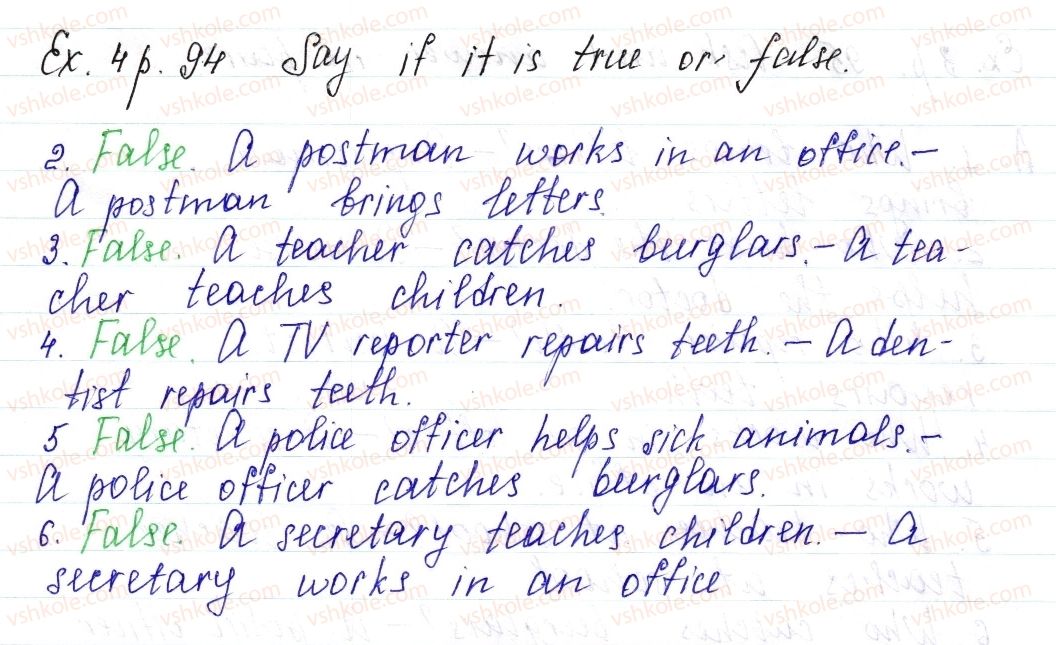 Ex. 4 p. 94 Say if it is true or false.
2. False. A postman works in an office. –
A postman brings letters.
3. False. A teacher catches burglars. – A tea-
cher teaches children.
4. False. A TV reporter repairs teeth. – A den-
tist repairs teeth.
5 False. A police officer helps sick animals. –
A police officer catches burglars.
6. False. A secretary teaches children. – A
secretary works in an office